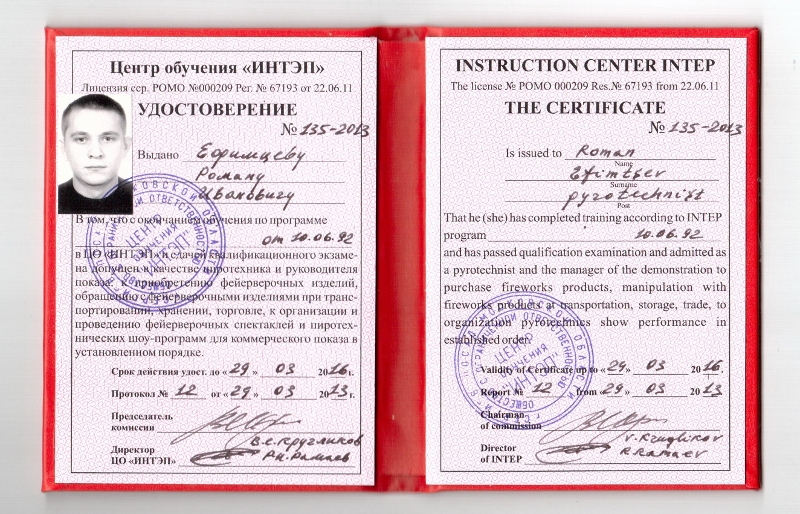 Центр обучения «ИНТЭП»
Лицензия сер. РОМО №000209 Рег. № 67193 от 22.06.11
УДОСТОВЕРЕНИЕ
№ 135-2013
Выдано Ефимцеву
Роману
Ивановичу
В том, что с окончанием обучения по программе
от 10.06.92
в ЦО «ИНТЭП» и сдачей квалификационного экзаме-
на допущен в качестве пиротехника и руководителя
показа: к приобретению фейерверочных изделий,
обращению с фейерверочными изделиями при транс-
портировании, хранении, торговле, к организации и
проведению фейерверочных спектаклей и пиротех-
нических шоу-программ для коммерческого показа в
установленном порядке.
Срок действия удост. до «29» 03 2016 г.
Протокол № 12 от «29» 03 2013 г.
Председатель
комиссии
В.С. Кругликов
Директор
ЦО «ИНТЭП»
Р.Н. Рамаев
INSTRUCTION CENTER INTEP
The license № РОМО 000209 Res.№ 67193 from 22.06.11
THE CERTIFICATE
№ 135-2013
Is issued to Roman
Name
Efimtsev
Surname
pyrotechnist
Post
That he (she) has completed training according to INTEP
program 10.06.92
and has passed qualification examination and admitted as
a pyrotechnist and the manager of the demonstration to
purchase fireworks products, manipulation with
fireworks products at transportation, storage, trade, to
organization pyrotechnics show performance in
established order.
Validity of Certificate up to «29» 03 2016.
Report № 12 from «29» 03 2013
Chairman
of commission
V. Kruglikov
Director
of INTEP
R. Ramaev
ЦЕНТР
ОБУЧЕНИЯ
"ИНТЭП"